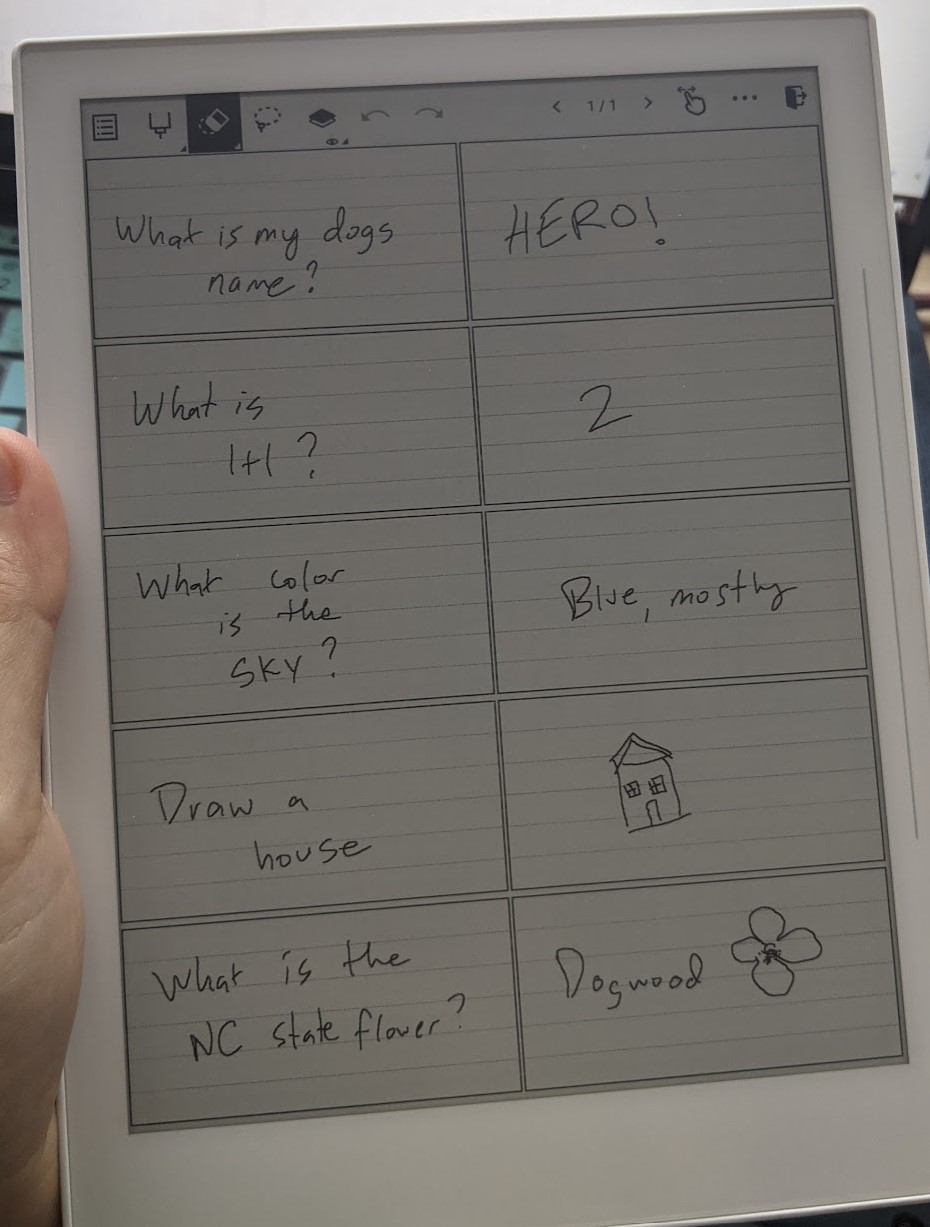 < 1/1 > ...
What is my dogs
name?
HERO!
What is
1+1?
2
What color
is the
SKY?
Blue, mostly
Draw a
house
What is the
NC state flower?
Dogwood